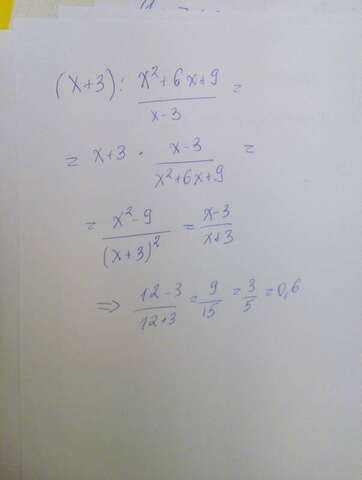 (x+3) : x²+6x+9 / x-3 =
= x+3 · x-3 / x²+6x+9 =
= x²-9 / (x+3)² = x-3 / x+3
⇒ 12-3 / 12+3 = 9/15 = 3/5 = 0,6